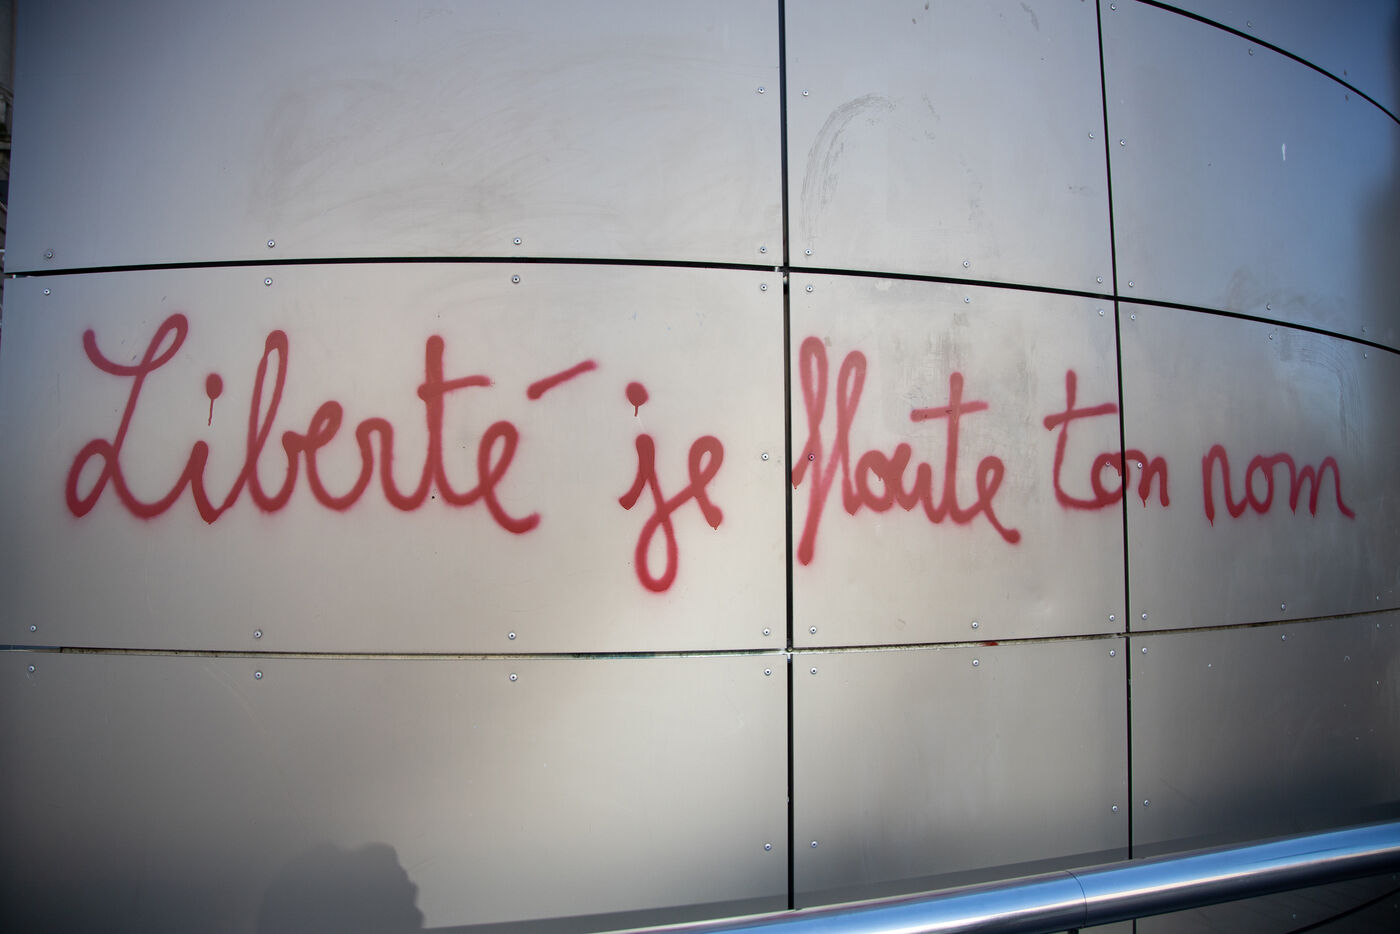 Liberté je floute ton nom